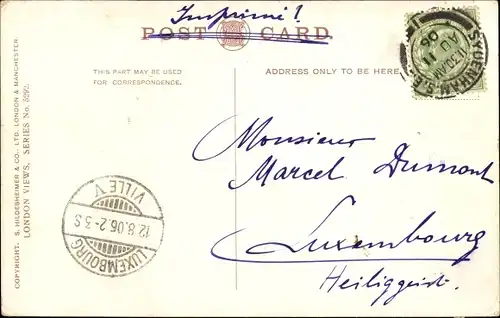 Imprimé!
POST CARD
THIS PART MAY BE USED
FOR CORRESPONDENCE.
ADDRESS ONLY TO BE HERE
SYDENHAM S.E.
11.30AM
AU 11
06
Monsieur
Marcel Dumont
Luxembourg
Heiliggeist.
LUXEMBOURG
12.8.06.2-3 S
VILLE V
COPYRIGHT. S. HILDESHEIMER & CO., LTD. LONDON & MANCHESTER.
LONDON VIEWS, SERIES No.